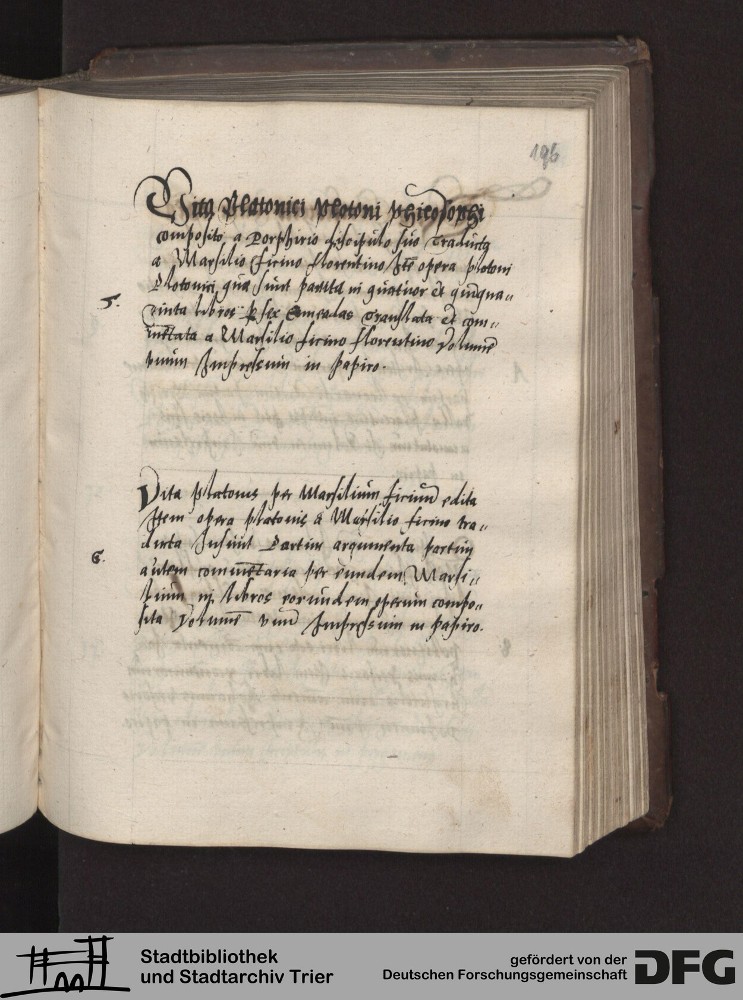 196
Vita Platonici Plotoni philosophi
composito a Porphirio discipulo suo Traducta
a Marsilio ficino florentino Itē opera plotoni
Plotonici qua sunt partita in quatuor et quīqua„
5. ginta libros p sex Emeadas Translata et com„
mētata a Marsilio ficino florentino Volumē
vnum Impressum in papiro.
Vita platonis per Marsilium ficinū edita
Item opera platonis a Marsilio ficino tra„
ducta Insunt Partim argumenta partim
6. autem commētaria per eundem Marsi„
lium in libros eorundem operum compo„
sita Volumē vnū Impressum in papiro.
Stadtbibliothek
und Stadtarchiv Trier
gefördert von der
Deutschen Forschungsgemeinschaft
DFG